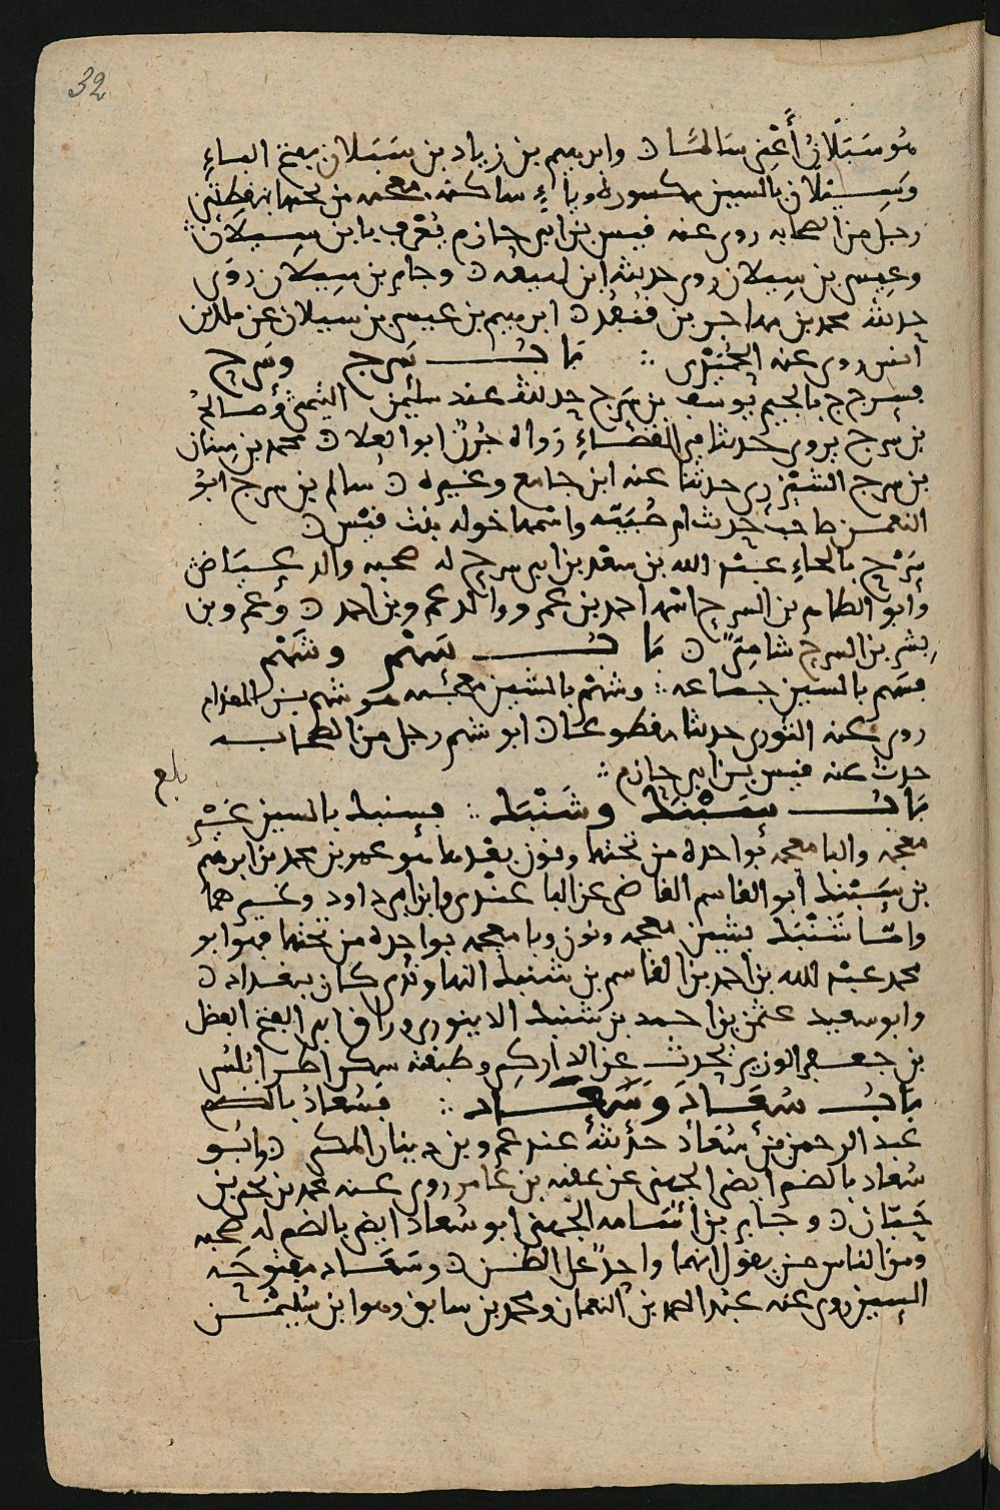 32
هو سَبَلَانُ أَعْنِي سَالمًا ن وابرهيم بن زياد بن سَبَلان بفتح الباءِ
وسِيلان بالسين مكسورة وياءٍ ساكنه معجمه من تحتها بنقطتين
رجل من الصحابه روى عنه قيس بن ابي حازم يُعْرف بابن سِيلان
وعيسى بن سِيلان روى حديثه ابن لهيعه ن وجابر بن سِيلان روَى
حديثه محمد بن مهاجر بن قنفد ن ابرهيم بن عيسى بن سيلان عن ملك بن
انس روى عنه
بابُ سَرج وسَرح
فسرج بالجيم يوسف بن سَرج حديثه عند سليمن التيمي وصالح
بن سرج يروي حديثا في القضاءِ رواه ابو العلا ن محمد بن سنان
بن سرج الشيزري حدثنا عنه ابن جامع وغيره ن سالم بن سرج ابو
النعمن صاحب حديث ام صُبَيّه واسْمها خوله بنت قيْس ن
سَرْح بالحاءِ عبد الله بن سعْد بن ابي سرح له صحبه والد عيَاض
وابو الطاهر بن السرح اسْمه احمد بن عمرو والد عمرو بن احمد ن وعمرو بن
بشر بن السرح شاميّ ن بابُ سَهْم وشَهْم
فسَهم بالسين جماعه وشهْم بالشين معجمه هو شهم بن المقدام
روى عنه الثوري حديثا مقطوعا ن ابو شهم رجل من الصحابه
حدث عنه قيس بن ابي حازم
بلغ
بابُ سَبْنط وشَنْبَط فسبنط بالسين غير
معجمه والبا معجمه بواحدة من تحتها ونون بعْدها هو عمر بن محمد بن ابرهيم
بن سَبَنْط ابو القاسم القاضي عن الباغندي وابن ابي داود وغيرهما
وامّا شَنْبَط بشين معجمه ونون وبا معجمه بواحده من تحتها فهو ابو
محمد عبْد الله بن احمد بن القاسم بن شنبط النهاوندي كان ببغداد ن
وابو سعيد عثمن بن احمد بن شنبط الدينوري وراق ابي الفتح الفضل
بن جعفر الوزير يحدث عن وطبقته سكن اطرابلس
بابُ سُعَاد وَسَعَاد فسُعادُ بالضم
عبد الرحمن بن سُعَاد حديثه عند عمرو بن دينار المكي ن وابو
سُعاد بالضم ايضا الجهني عن عقبه بن عامر روى عنه محمد بن يحيى بن
حَبّان ن وجَابر بن اسَامه الجهني ابو سُعاد ايضا بالضم له صحبه
ومن الناس من يقول انهما واحدٌ على الظن ن وسَعاد مفتوحَه
السين روى عنه عبْد الصمد بن النعمان ومحمد بن سابق وهو ابن سُليمن